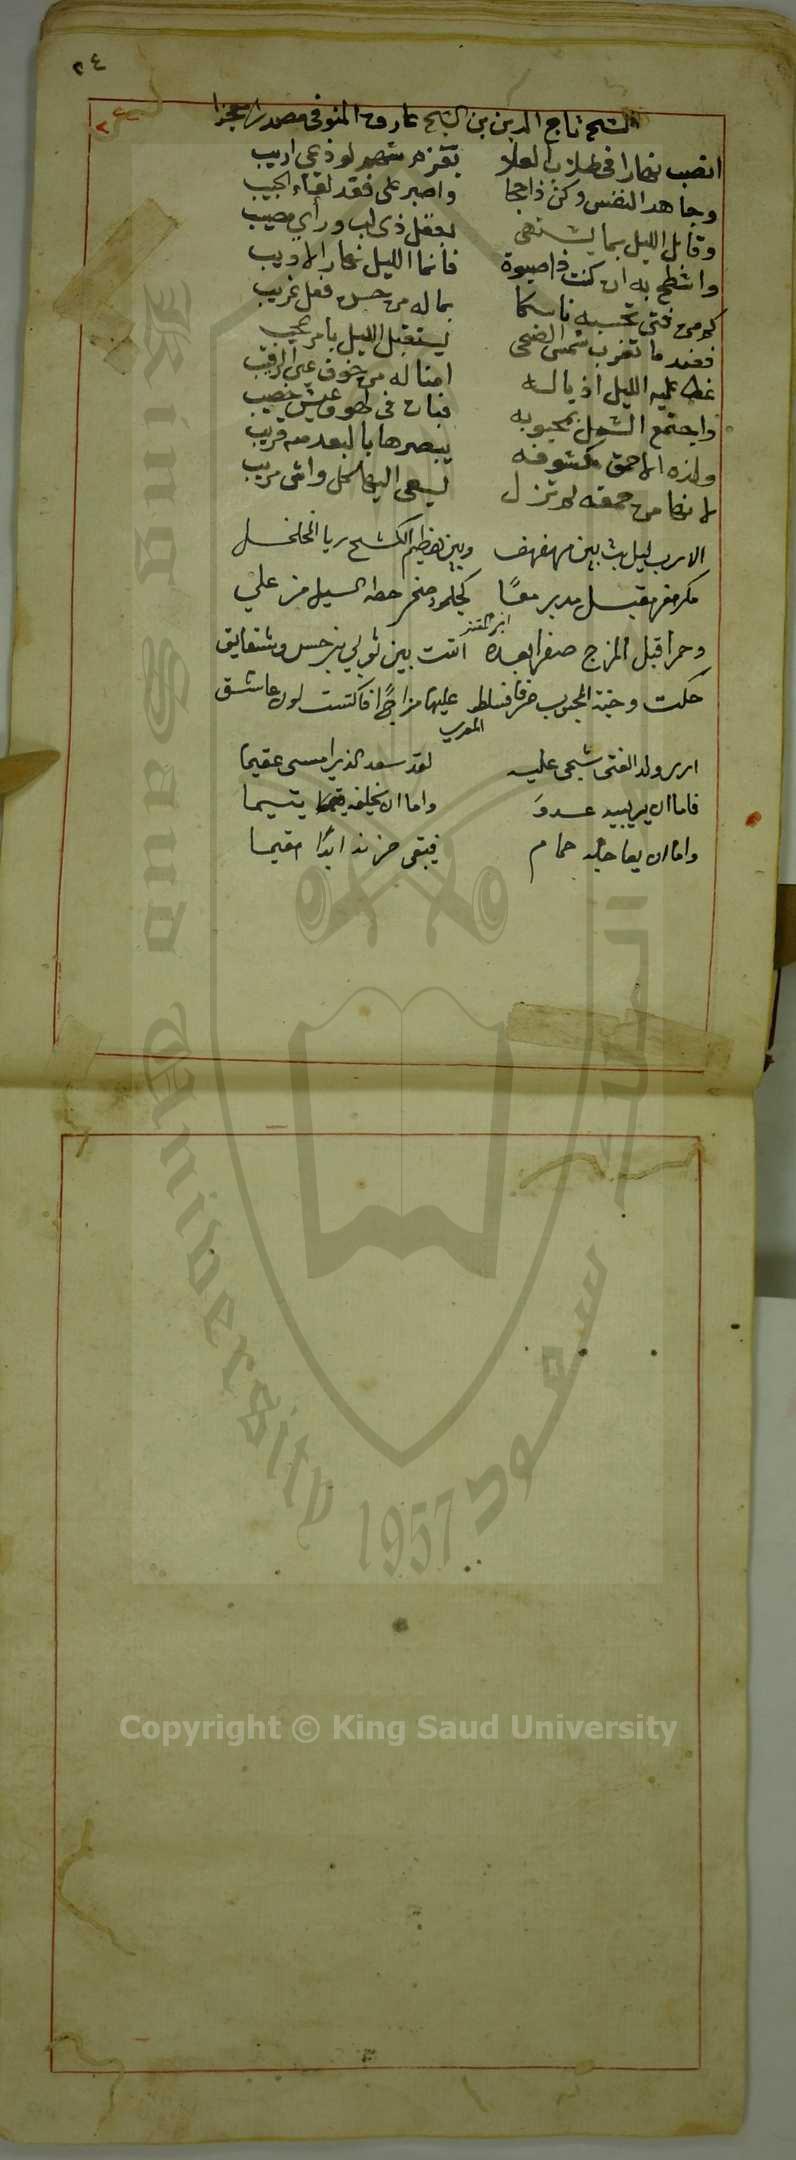 ٢٤
٢٤
للشيخ تاج الدين بن الشيخ عارف المنوفي مصدرا معجزا
انصب نهارا في طلاب العلا بعزم شهم لوذعي اريب
وجاهد النفس وكن ذا حجا واصبر على فقد لقاء الحبيب
وقابل الليل بما يشتهى بعقل ذى لب وراي مصيب
واشطح به ان كنت ذا صبوة فانما الليل نهار الاديب
كم من فتى تحسبه ناسكا بما له من حسن فعل غريب
فعند ما تغرب شمس الضحى يستقبل الليل بامر عجيب
غطى عليه الليل اذياله امنا له من خوف عين الرقيب
واجتمع الشمل بمحبوبه فبات فى لهو وعيش خصيب
ولذة الاحمق مكشوفة يبصرها بالبعد منه قريب
لانها من حمقه لم تزل يسعى اليها كل واش مريب
الا رب ليل بت بين مهفهف وبين هضيم الكشح ريا المخلخل
مكر مفر مقبل مدبر معًا كجلمود صخر حطه السيل من علي
ابن المعتز
وحمرا قبل المزج صفرا بعده اتت بين ثوبي نرجس وشقايق
حكت وجنة المحبوب صرفا فسلطو عليها مزاجًا فاكتست لون عاشق
المعري
ارى ولد الفتى شجى عليه لقد سعد الذي امسى عقيما
فاما ان يربيه عدوًّ واما ان يخلفه يتيما
واما ان يعاجله حمام فيبقى حزنه ابدًا مقيما
King Saud University
1957
سعود
Copyright © King Saud University